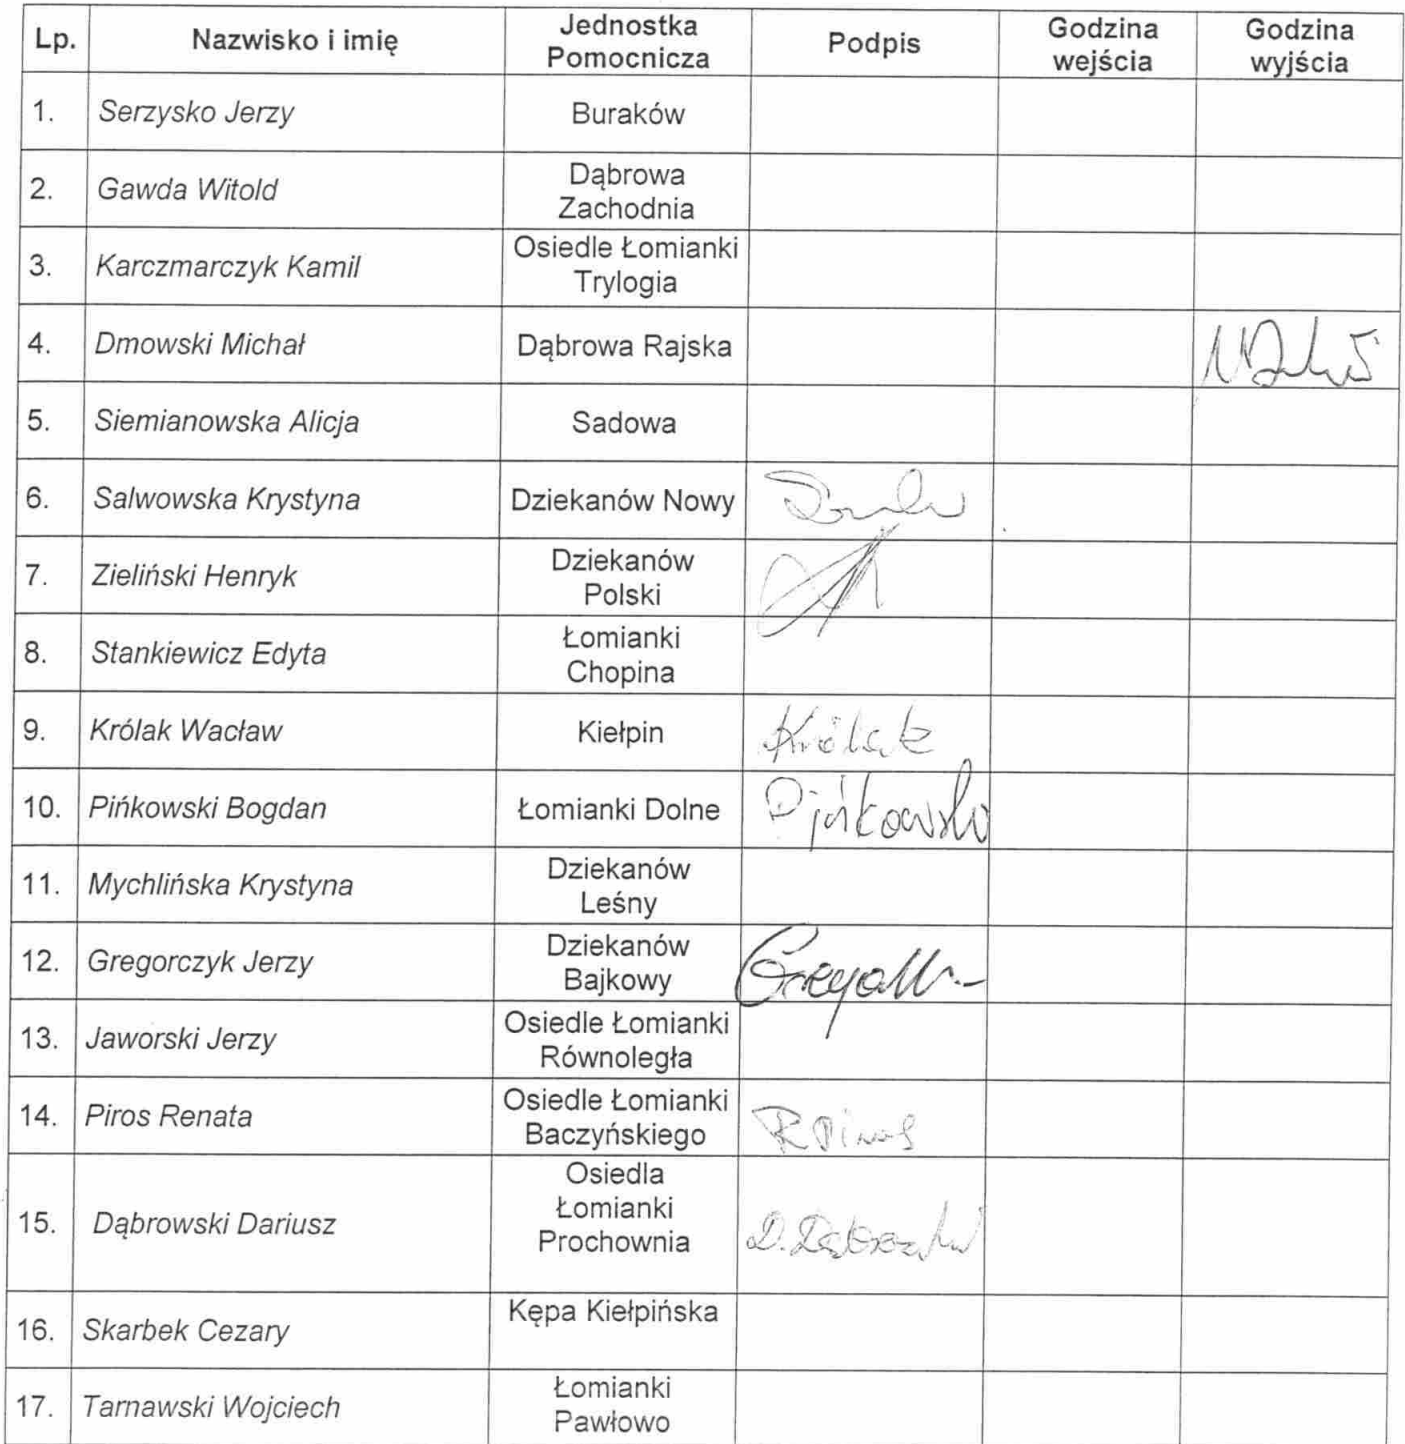 Lp. Nazwisko i imię Jednostka Pomocnicza Podpis Godzina wejścia Godzina wyjścia
1. Serzysko Jerzy Buraków
2. Gawda Witold Dąbrowa Zachodnia
3. Karczmarczyk Kamil Osiedle Łomianki Trylogia
4. Dmowski Michał Dąbrowa Rajska
5. Siemianowska Alicja Sadowa
6. Salwowska Krystyna Dziekanów Nowy
7. Zieliński Henryk Dziekanów Polski
8. Stankiewicz Edyta Łomianki Chopina
9. Królak Wacław Kiełpin Królak
10. Pińkowski Bogdan Łomianki Dolne Pińkowski
11. Mychlińska Krystyna Dziekanów Leśny
12. Gregorczyk Jerzy Dziekanów Bajkowy
13. Jaworski Jerzy Osiedle Łomianki Równoległa
14. Piros Renata Osiedle Łomianki Baczyńskiego R Piros
15. Dąbrowski Dariusz Osiedla Łomianki Prochownia D. Dąbrowski
16. Skarbek Cezary Kępa Kiełpińska
17. Tarnawski Wojciech Łomianki Pawłowo